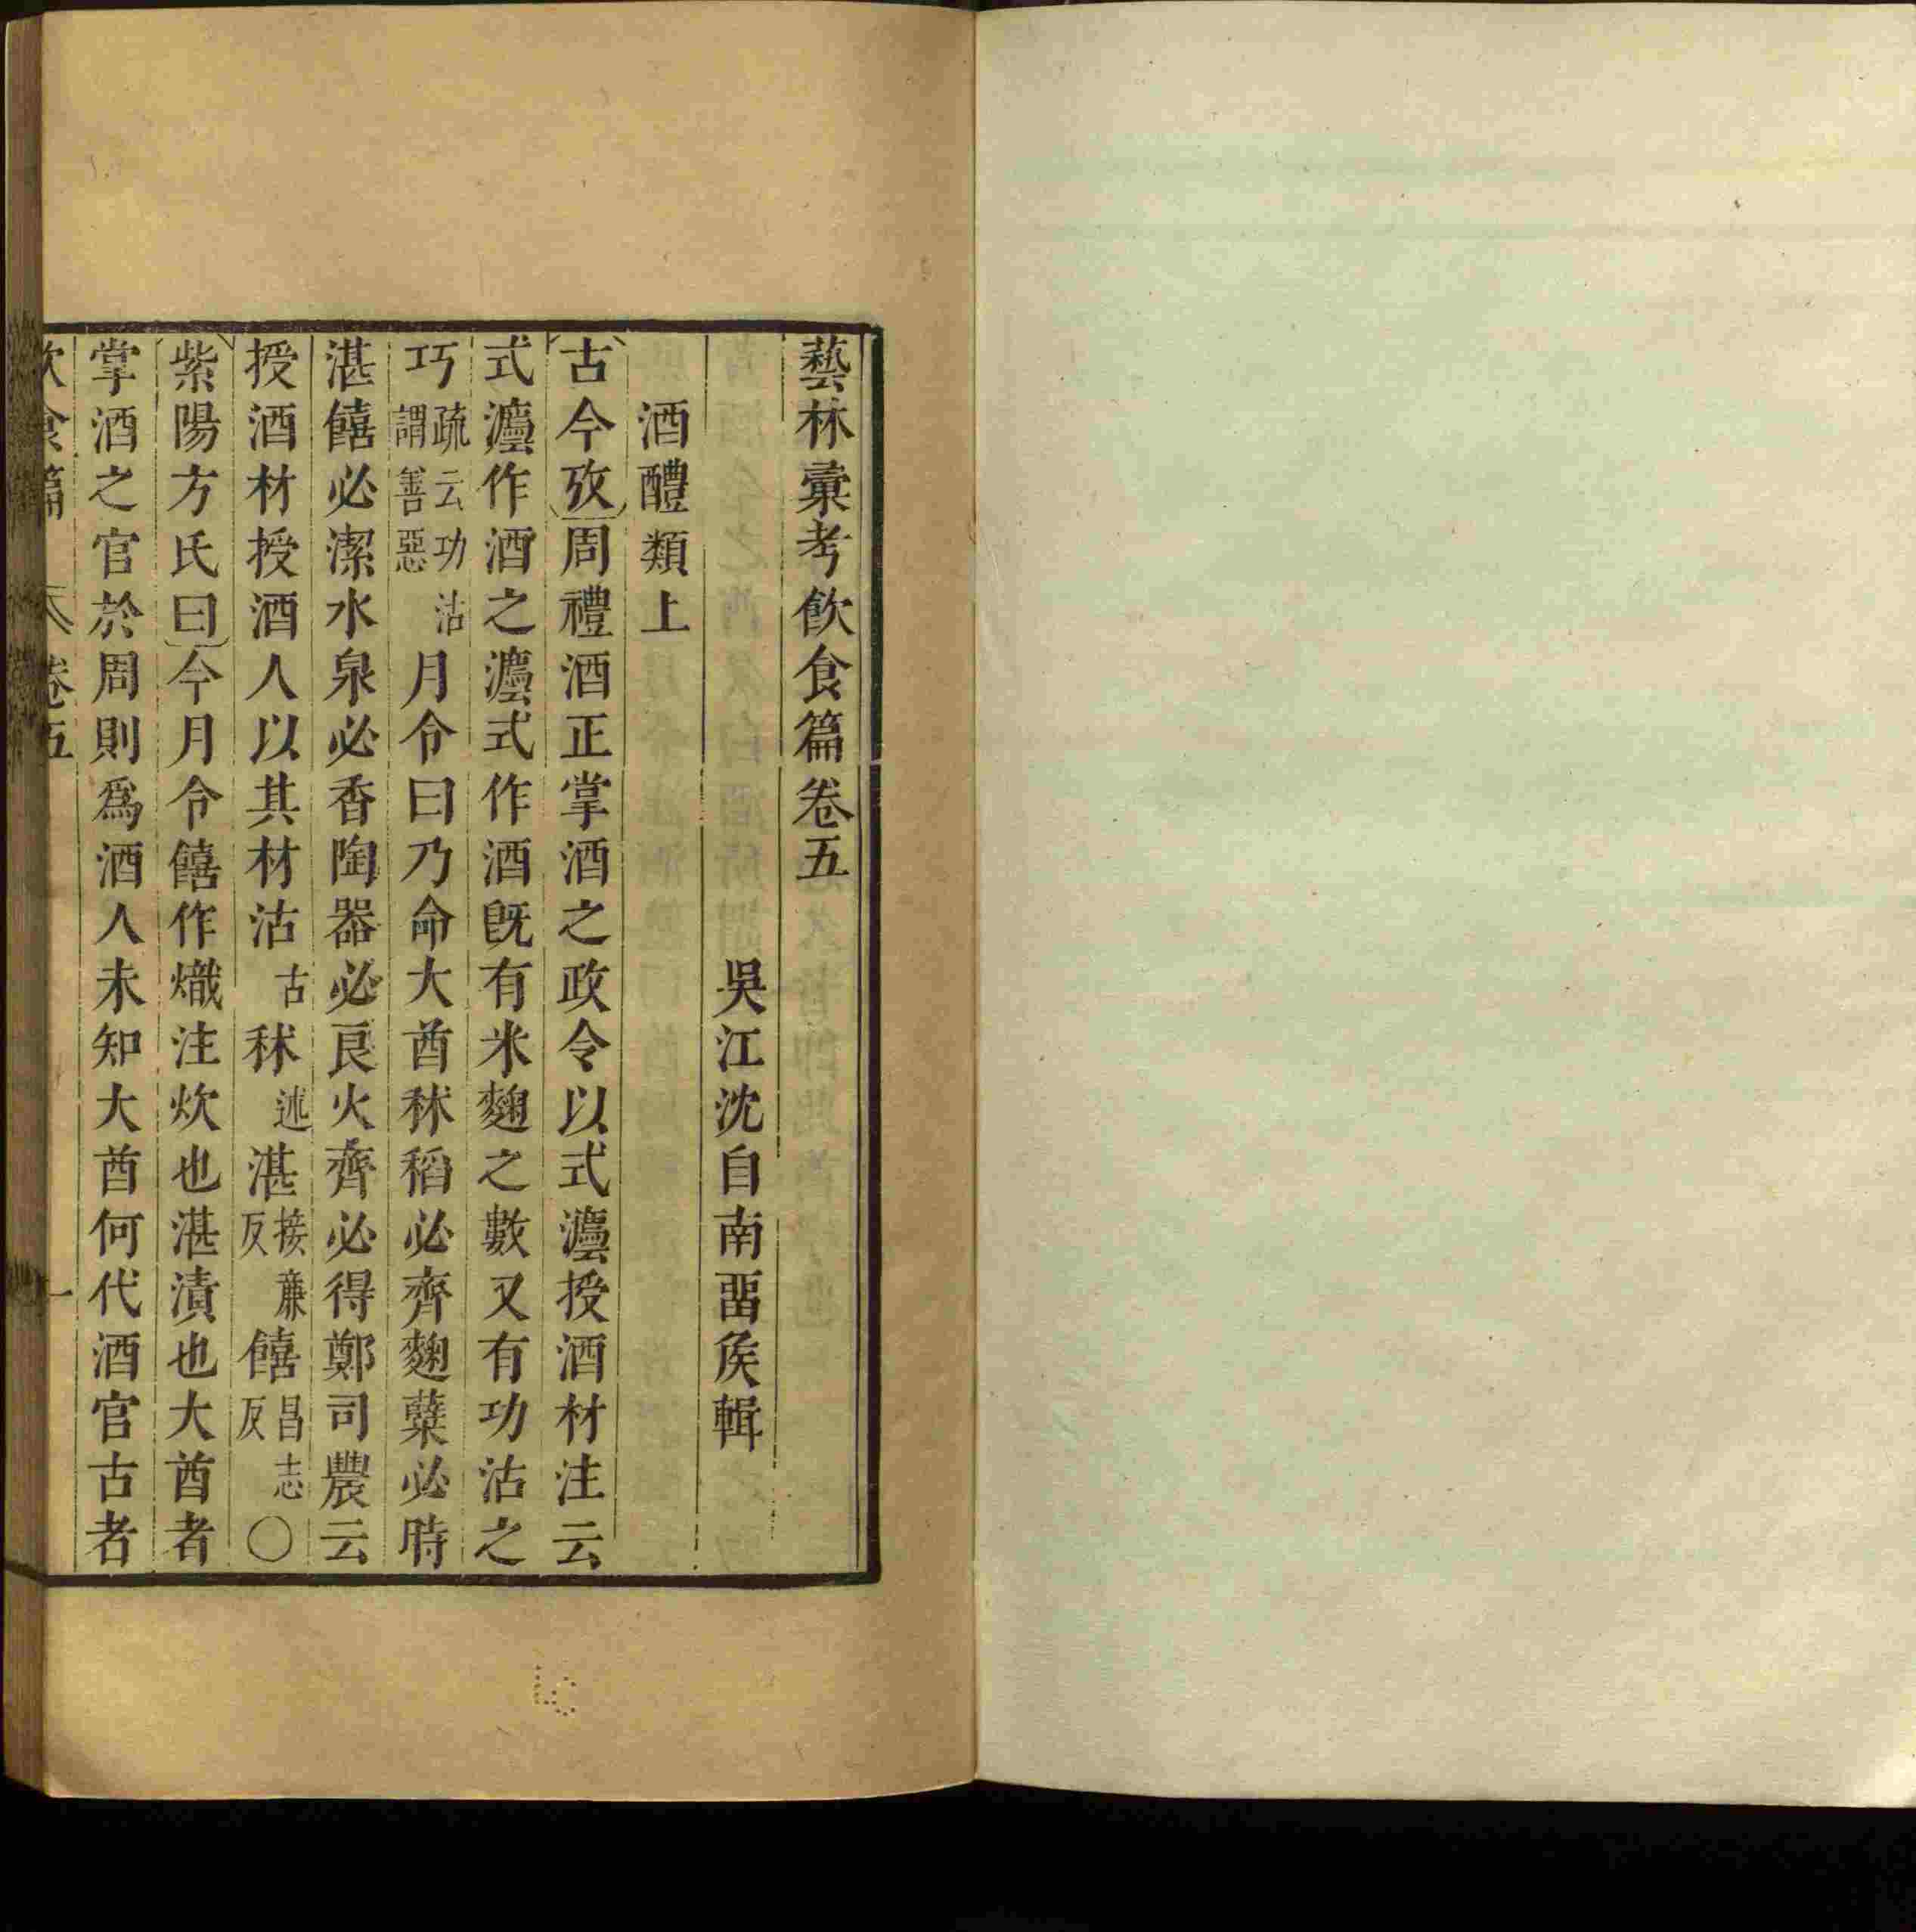 藝林彙考飲食篇卷五
吳江沈自南畱矦輯
酒醴類上
古今攷周禮酒正掌酒之政令以式灋授酒材注云
式灋作酒之灋式作酒旣有米麴之數又有功沽之
巧疏云功沽謂善惡月令曰乃命大酋秫稻必齊麴糵必時
湛饎必潔水泉必香陶器必良火齊必得鄭司農云
授酒材授酒人以其材沽古秫述湛接廉反饎昌志反〇
紫陽方氏曰今月令饎作熾注炊也湛漬也大酋者
掌酒之官於周則爲酒人未知大酋何代酒官古者
飲食篇 卷五 一